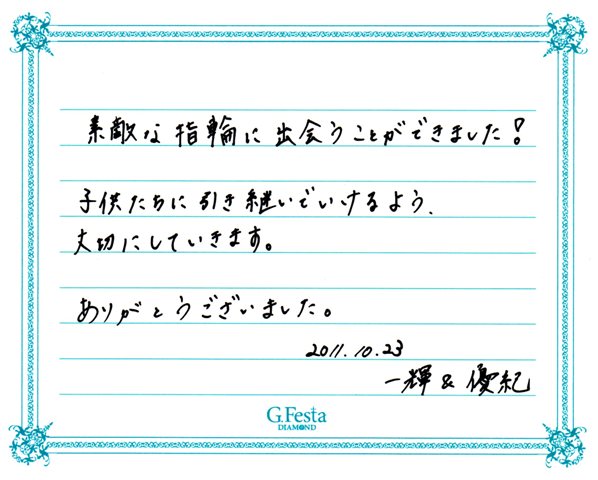 素敵な指輪に出会うことができました!
子供たちに引き継いでいけるよう、
大切にしていきます。
ありがとうございました。
2011.10.23
一輝 & 優紀
G.Festa
DIAMOND